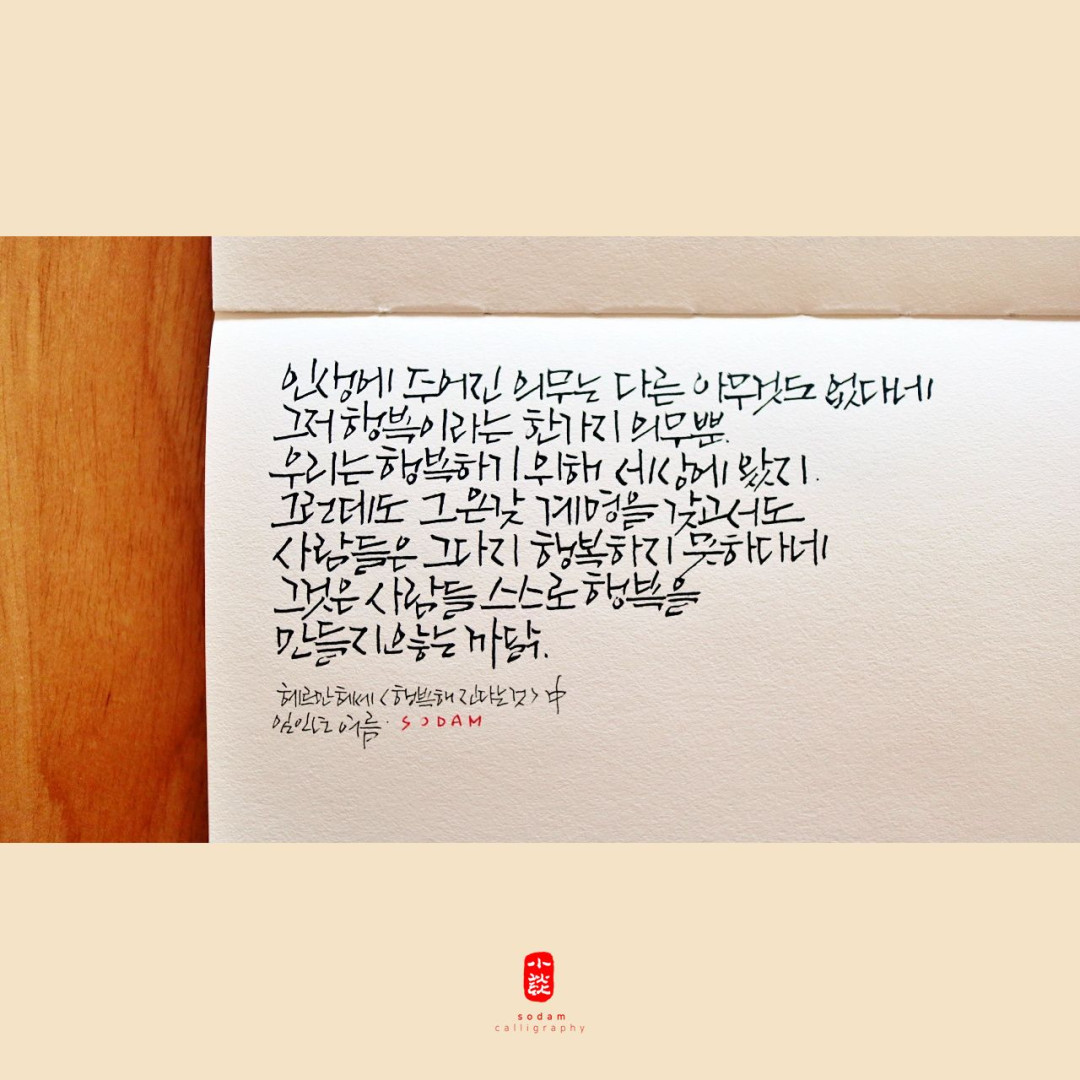 인생에 주어진 의무는 다른 아무것도 없다네
그저 행복이라는 한가지 의무뿐.
우리는 행복하기 위해 세상에 왔지.
그런데도 그 온갖 계명을 갖고서도
사람들은 그다지 행복하지 못하다네
그것은 사람들 스스로 행복을
만들지 않는 까닭.
헤르만 헤세 <행복해 진다는 것> 中
임인년 여름. SODAM
小談
sodam
calligraphy